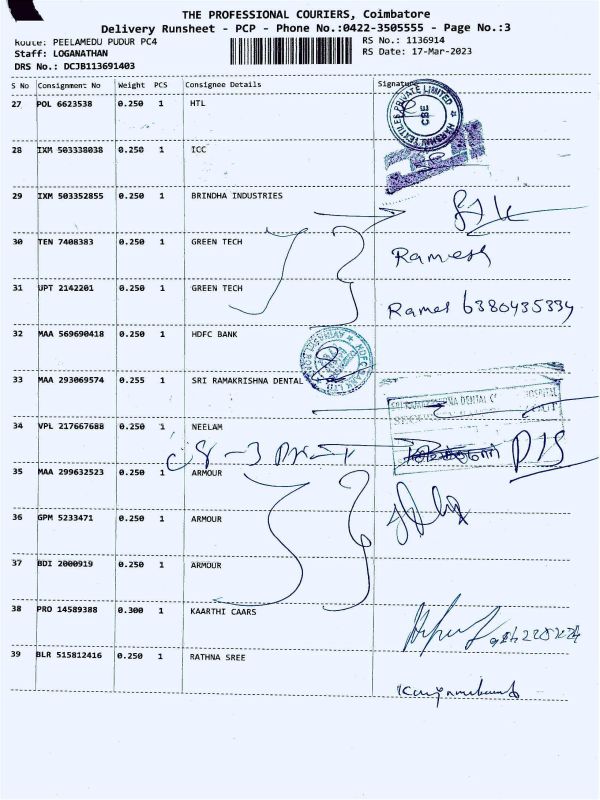 THE PROFESSIONAL COURIERS, Coimbatore
Delivery Runsheet - PCP - Phone No.:0422-3505555 - Page No.:3
Route: PEELAMEDU PUDUR PC4
RS No.: 1136914
Staff: LOGANATHAN
RS Date: 17-Mar-2023
DRS No.: DCJB113691403
S No Consignment No Weight PCS Consignee Details Signature
27 POL 6623538 0.250 1 HTL
28 IXM 503338038 0.250 1 ICC
29 IXM 503352855 0.250 1 BRINDHA INDUSTRIES
30 TEN 7408383 0.250 1 GREEN TECH Ramesh
31 UPT 2142201 0.250 1 GREEN TECH Rames 6380435334
32 MAA 569690418 0.250 1 HDFC BANK
33 MAA 293069574 0.255 1 SRI RAMAKRISHNA DENTAL
34 VPL 217667688 0.250 1 NEELAM
35 MAA 299632523 0.250 1 ARMOUR
36 GPM 5233471 0.250 1 ARMOUR
37 BDI 2000919 0.250 1 ARMOUR
38 PRO 14589388 0.300 1 KAARTHI CAARS
39 BLR 515812416 0.250 1 RATHNA SREE